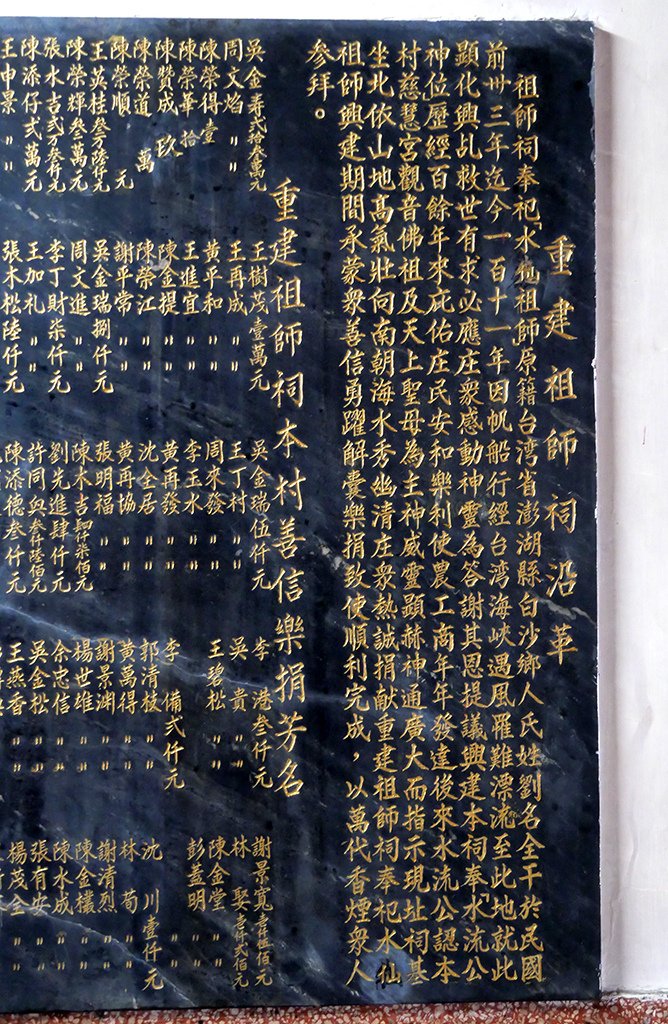 重建祖師祠沿革
祖師祠奉祀「水仙祖師」原籍台湾省澎湖縣白沙鄉人氏姓劉名全干於民國
前卅三年迄今一百十一年因帆船行經台湾海峡遇風罹難漂流至此地就此
顯化興乩救世有求必應庄衆感動神靈為答謝其恩提議興建本祠奉「水流公」
神位歷經百餘年來庇佑庄民安和樂利使農工商年年發達後來水流公認本
村慈慧宮觀音佛祖及天上聖母為主神威靈顯赫神通廣大而指示現址祠基
坐北依山地高氣壯向南朝海水秀幽清庄衆熱誠捐献重建祖師祠奉祀水仙
祖師興建期間承蒙衆善信勇躍解囊樂捐致使順利完成，以萬代香煙衆人
參拜。
重建祖師祠本村善信樂捐芳名
吳金壽弍拾叁萬元
周文焰〃〃
陳榮得壹
陳榮華拾
陳贊成玖
陳榮道萬
陳榮順元
王英桂叁万陸仟元
陳榮輝叁萬元
張水古弍万叁仟元
陳添仔弍萬元
王申景〃〃
王樹茂壹萬元
王再成〃〃
黃平和〃〃
王進宜〃〃
陳金提〃〃
陳榮江〃〃
謝平常〃〃
吳金瑞捌仟元
周文進〃〃
李丁財柒仟元
王加礼〃〃
張木松陸仟元
吳金瑞伍仟元
王丁村〃〃
周來發〃〃
李玉水〃〃
黃再發〃〃
沈全居〃〃
黃再協〃〃
張明福〃〃
陳木吉肆仟柒佰元
劉先進肆仟元
許同與叁仟陸佰元
陳添德叁仟元
李港叁仟元
吳貴〃〃
王碧松〃〃
李備弍仟元
郭清枝〃〃
黃萬得〃〃
謝景渊〃〃
楊世雄〃〃
余忠信〃〃
吳金松〃〃
王燕香〃〃
謝景寬壹仟伍佰元
林娶壹仟弍佰元
陳金堂〃〃
彭蓋明〃〃
沈川壹仟元
林荀〃〃
謝清烈〃〃
陳金欉〃〃
陳水成〃〃
張有安〃〃
楊茂全〃〃